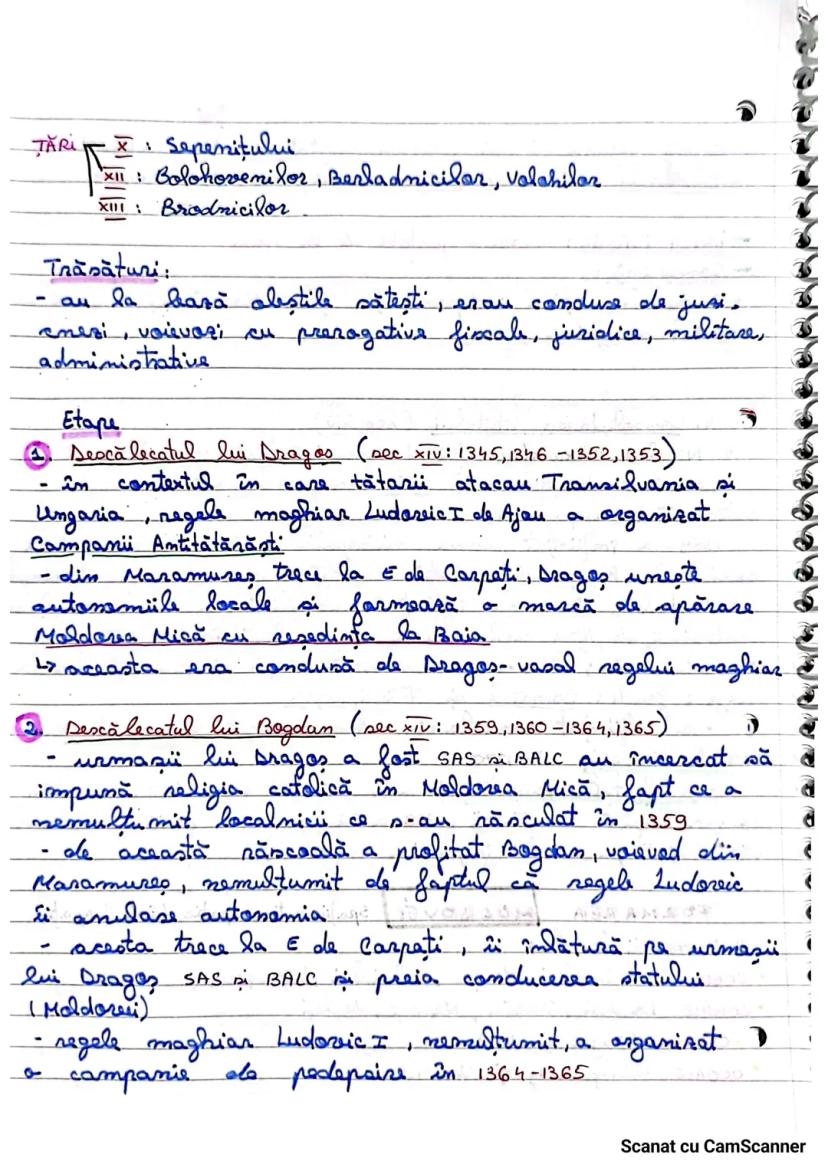 ȚĂRi X : Sepenițului
XII : Bolohovenilor, Berladnicilor, Volohilor
XIII : Brodnicilor
Trăsături:
- au la bază obștile sătești, erau conduse de juzi,
cnezi, voievozi cu prerogative fiscale, juridice, militare,
administrative
Etape
1. Descălecatul lui Dragoș (sec XIV: 1345,1346 -1352,1353)
- în contextul în care tătarii atacau Transilvania și
Ungaria, regele maghiar Ludovic I de Ajou a organizat
Campanii Antitătărăști
- din Maramureș trece la E de Carpați, Dragoș unește
autonomiile locale și formează o marcă de apărare
Moldova Mică cu reședința la Baia
↳ aceasta era condusă de Dragoș- vasal regelui maghiar
2. Descălecatul lui Bogdan (sec XIV: 1359,1360 -1364,1365)
- urmașii lui Dragoș a fost SAS și BALC au încercat să
impună religia catolică în Moldova Mică, fapt ce a
nemulțumit localnicii ce s-au răsculat în 1359
- de această răscoală a profitat Bogdan, voievod din
Maramureș, nemulțumit de faptul că regele Ludovic
îi anulase autonomia
- acesta trece la E de Carpați, îi înlătură pe urmașii
lui Dragoș SAS și BALC și preia conducerea statului
(Moldovei)
- regele maghiar Ludovic I, nemulțumit, a organizat
o campanie de pedepsire în 1364-1365
Scanat cu CamScanner